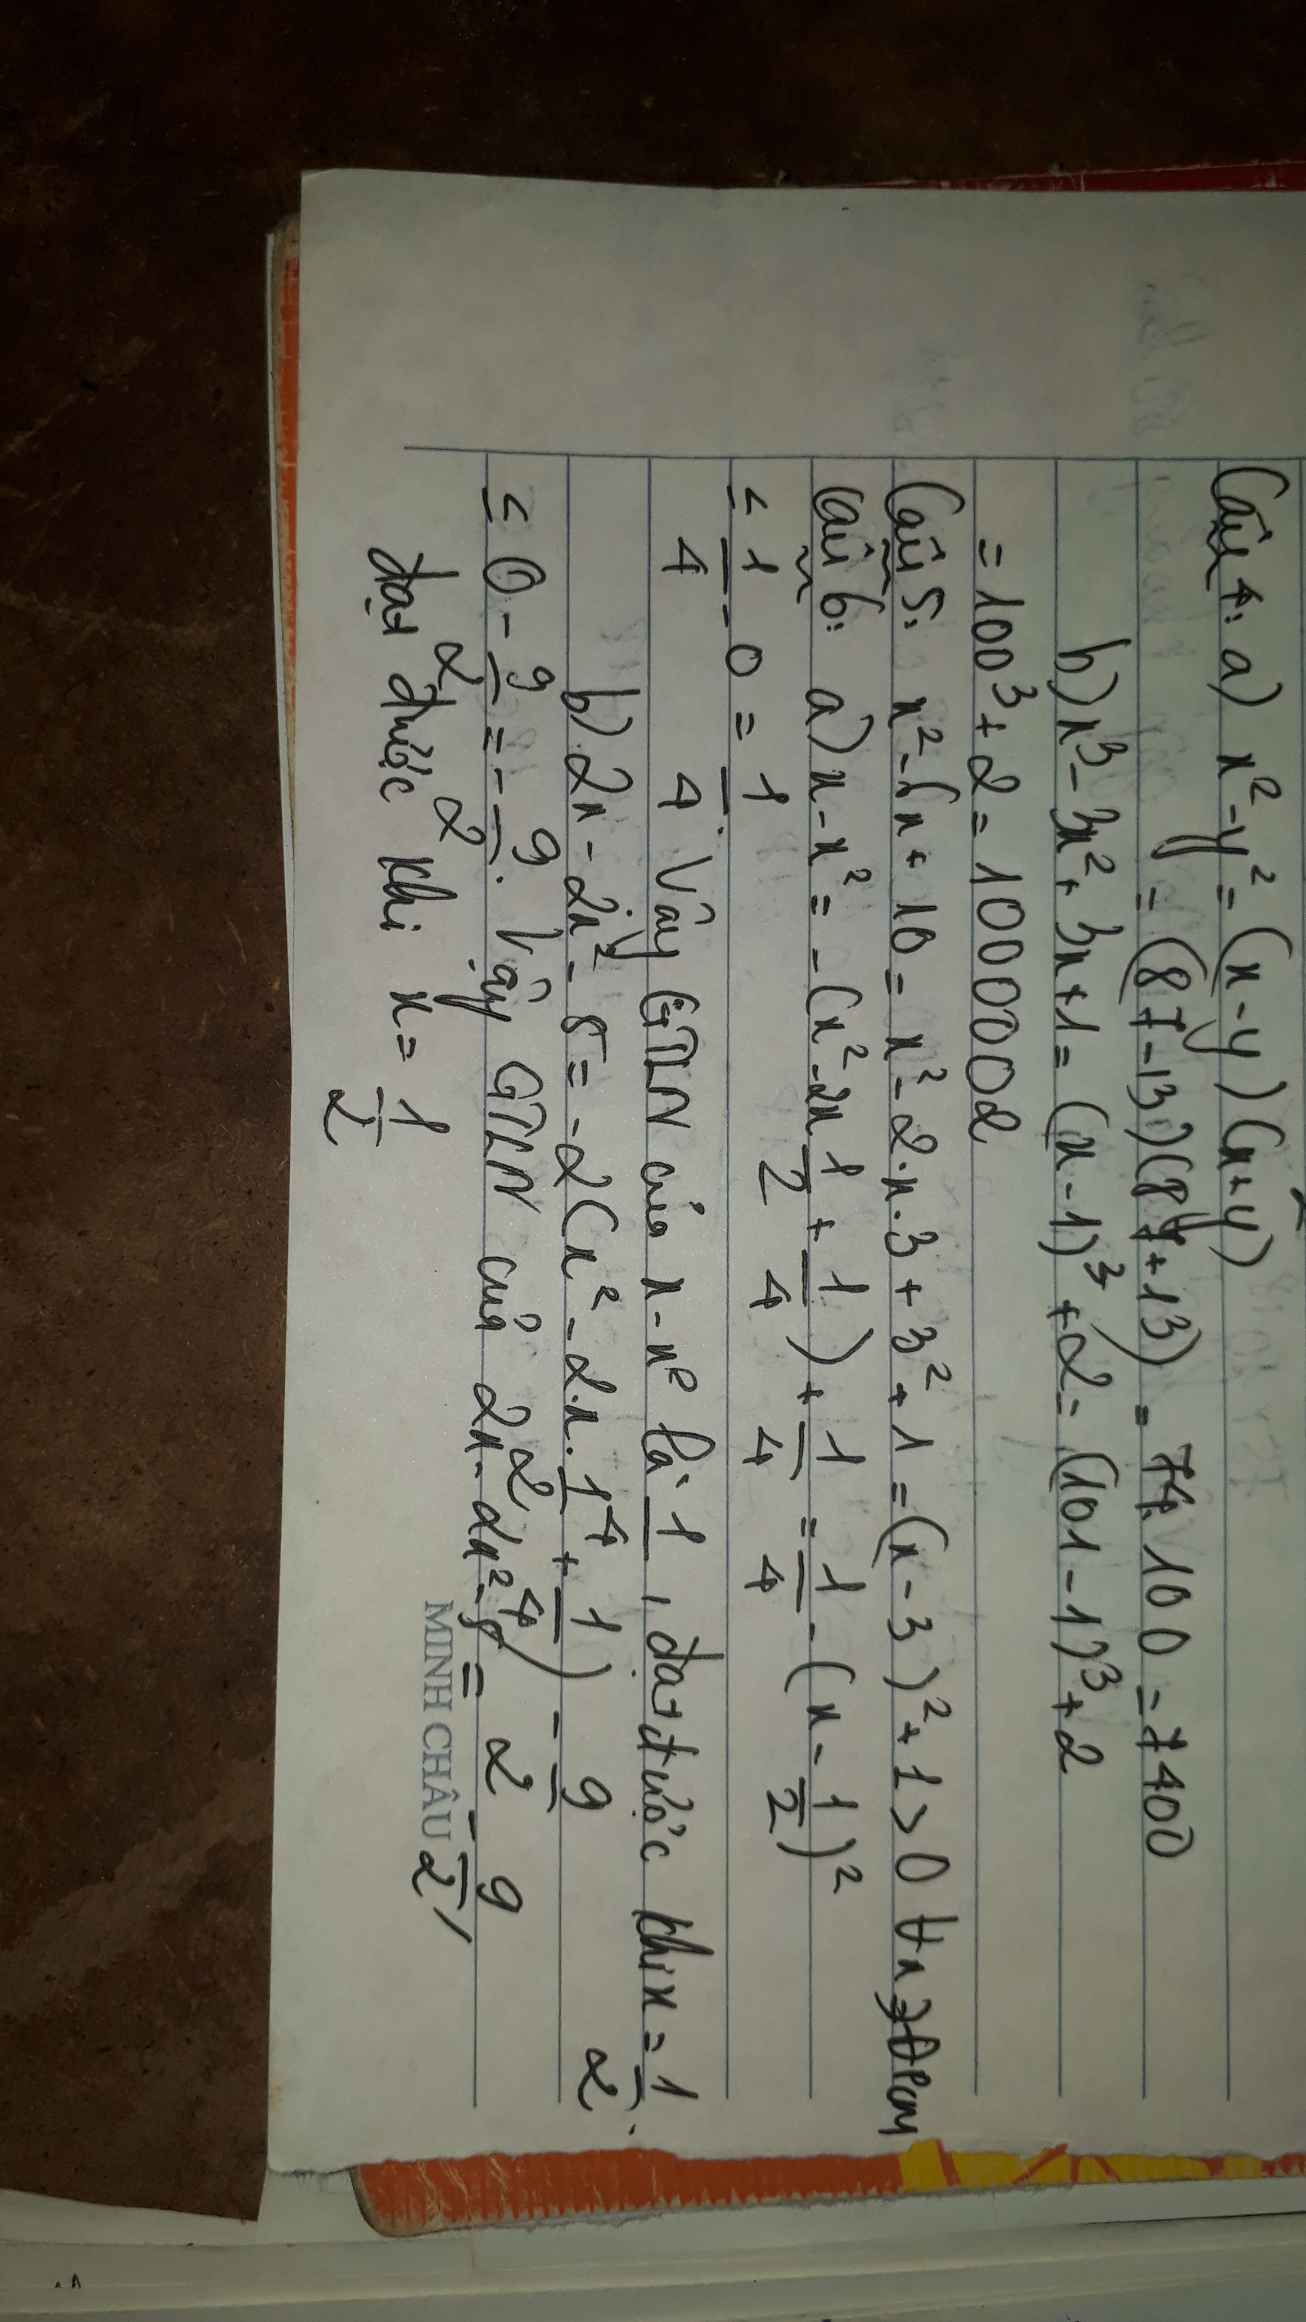 Câu 4: a) x² - y² = (x - y) (x + y)
= (87 - 13) (87 + 13) = 74. 100 = 7400
b) x³ - 3x² + 3x + 1 = (x - 1)³ + 2 = (101 - 1)³ + 2
= 100³ + 2 = 1000002
Câu 5: x² - 6x + 10 = x² - 2.x.3 + 3² + 1 = (x - 3)² + 1 > 0 ∀x
Câu 6: a) x - x² = - (x² - 2x 1/2 + 1/4) + 1/4 = 1/4 - (x - 1/2)²
≤ 1/4 - 0 = 1/4. Vậy GTLN của x - x² là 1/4, đạt được khi x = 1/2.
b) 2x - 2x² - 5 = -2 (x² - 2.x. 1/2 + 1/4) - 9/2
≤ 0 - 9/2 = - 9/2. Vậy GTLN của 2x - 2x² - 5 = - 9/2,
đạt được khi x = 1/2
MINH CHÂU